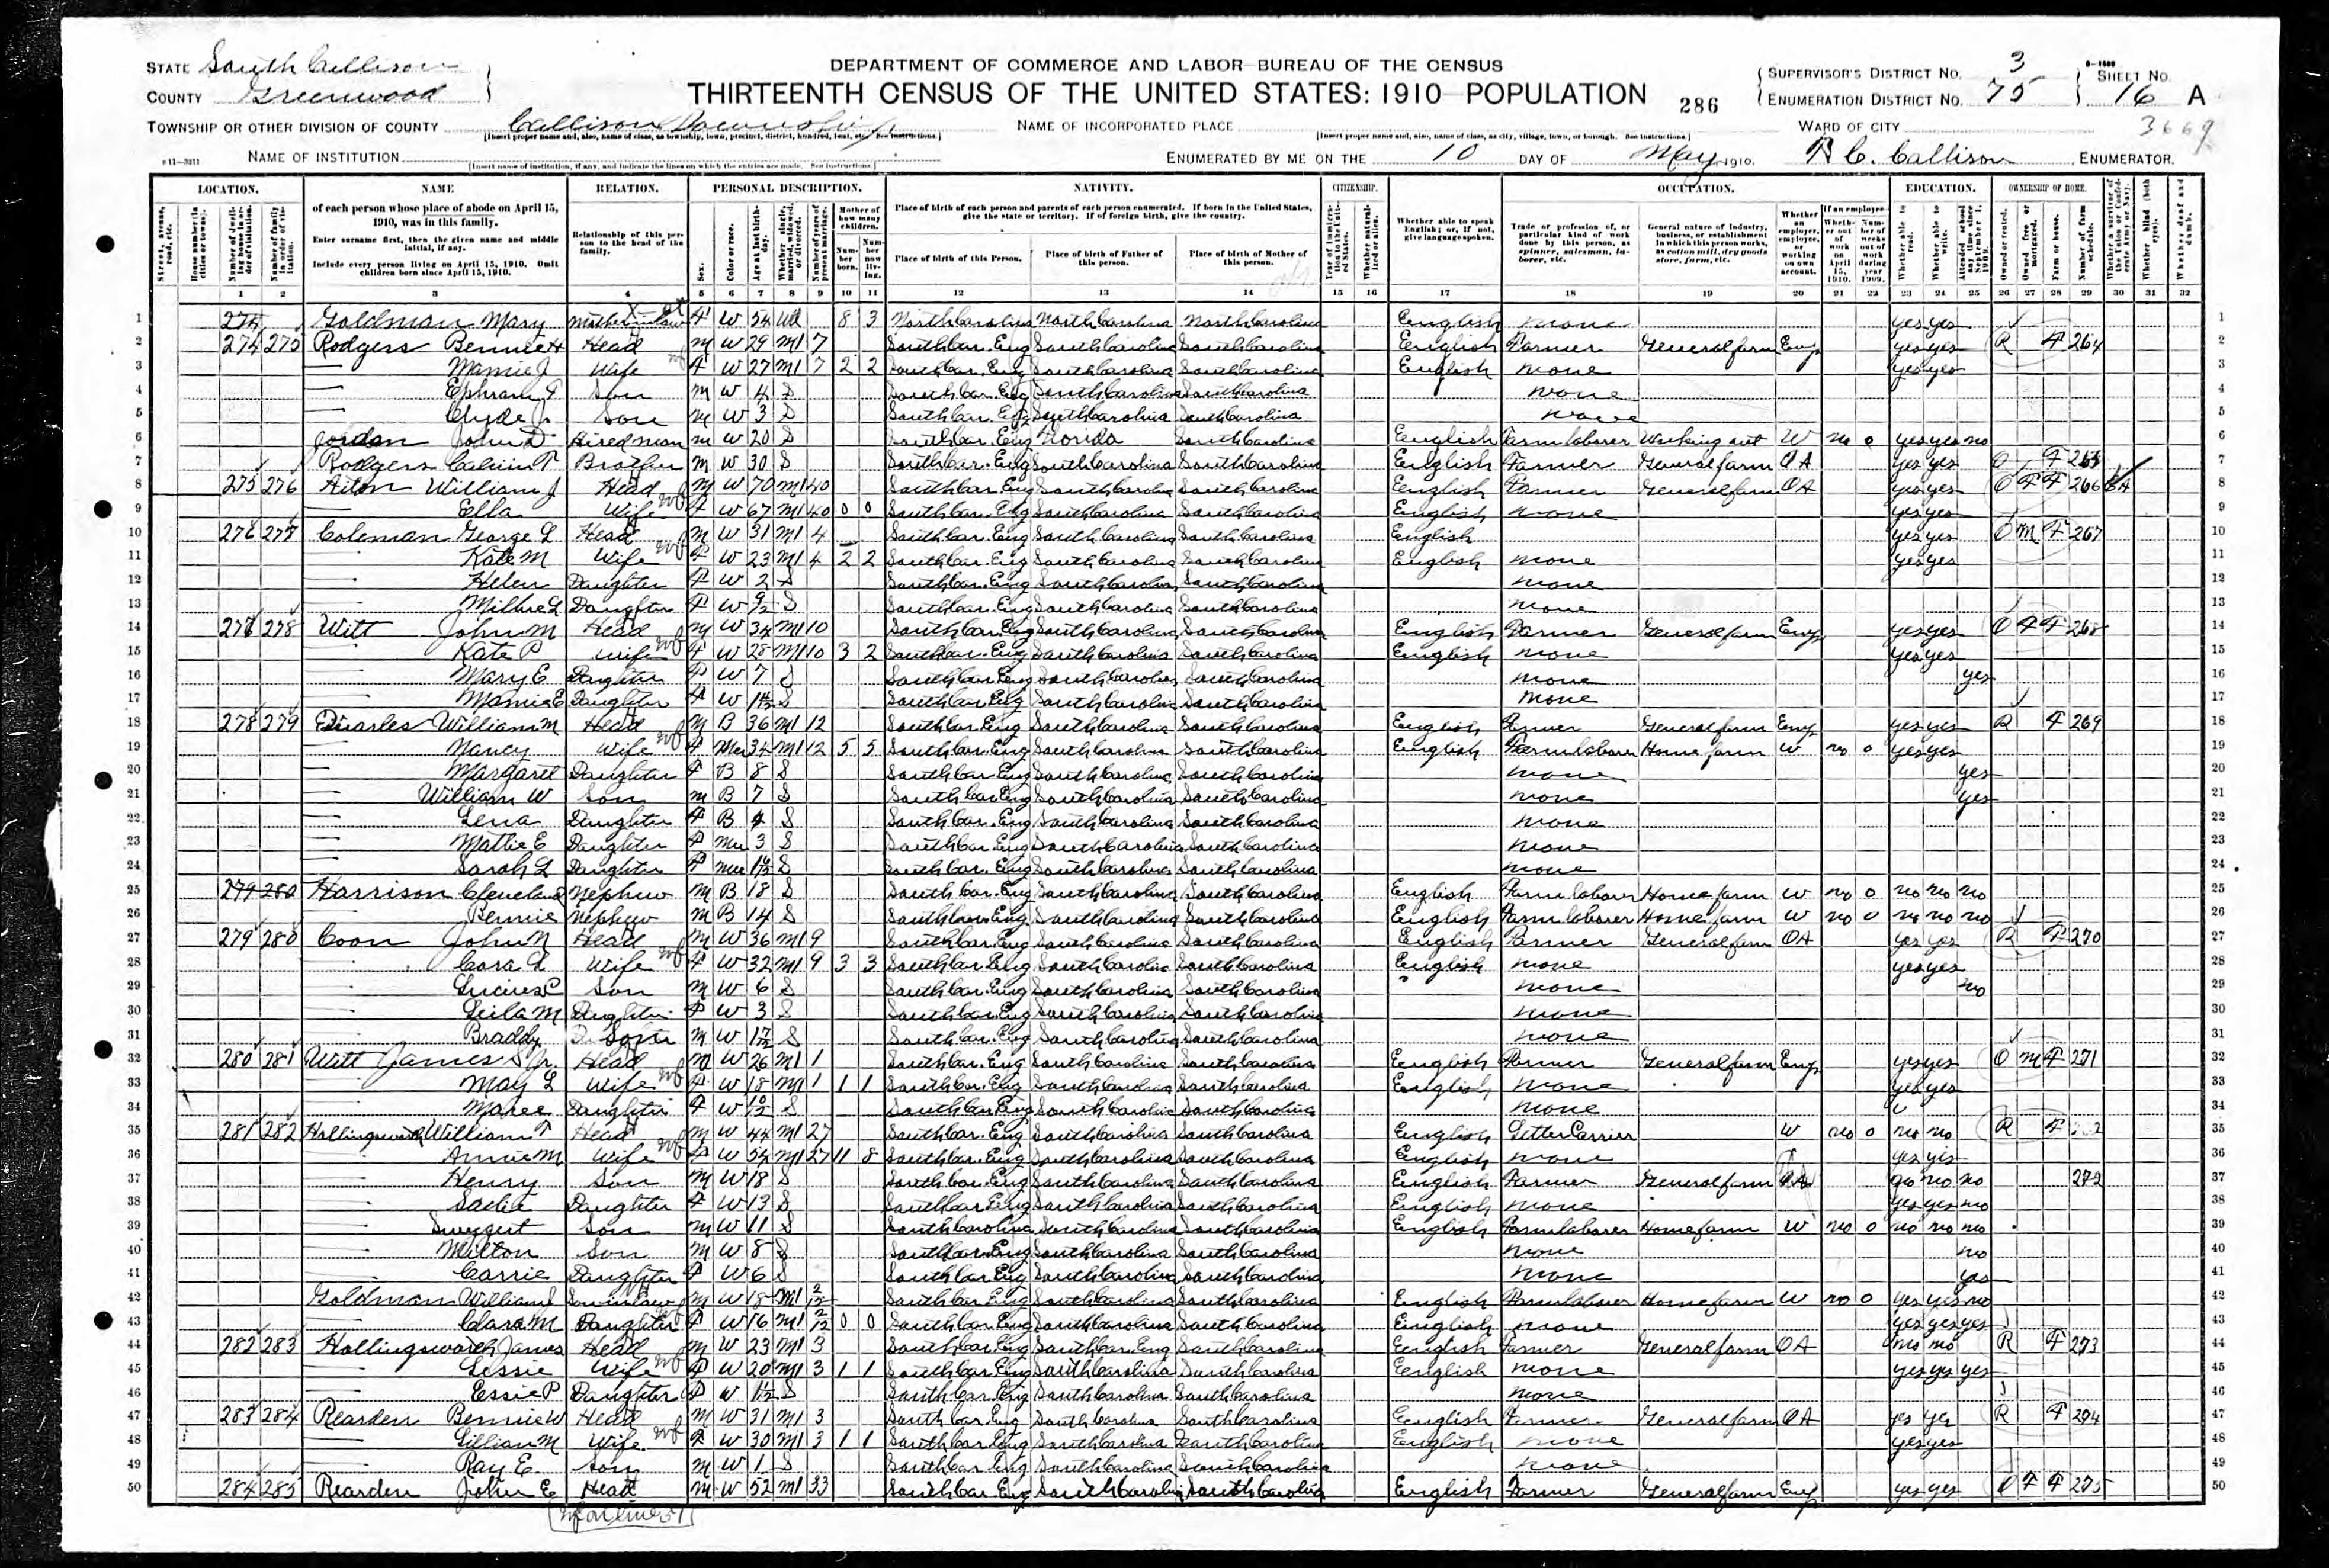 DEPARTMENT OF COMMERCE AND LABOR-BUREAU OF THE CENSUS
THIRTEENTH CENSUS OF THE UNITED STATES: 1910 POPULATION
286
STATE South Callison
COUNTY Greenwood
TOWNSHIP OR OTHER DIVISION OF COUNTY Callison Township
[Insert proper name and, also, name of class, as township, town, precinct, district, hundred, beat, etc. See instructions.]
NAME OF INCORPORATED PLACE
[Insert proper name and, also, name of class, as city, village, town, or borough. See instructions.]
SUPERVISOR'S DISTRICT No. 3
ENUMERATION DISTRICT No. 75
SHEET No. 16 A
WARD OF CITY
3669
NAME OF INSTITUTION
[Insert name of institution, if any, and indicate the lines on which the entries are made. See instructions.]
ENUMERATED BY ME ON THE 10 DAY OF May, 1910. R C. Callison, ENUMERATOR.
LOCATION. NAME RELATION. PERSONAL DESCRIPTION. NATIVITY. CITIZENSHIP. OCCUPATION. EDUCATION. OWNERSHIP OF HOME.
of each person whose place of abode on April 15, 1910, was in this family.
Enter surname first, then the given name and middle initial, if any.
Include every person living on April 15, 1910. Omit children born since April 15, 1910.
Relationship of this person to the head of the family.
Place of birth of each person and parents of each person enumerated. If born in the United States, give the state or territory. If of foreign birth, give the country.
Place of birth of this Person. Place of birth of Father of this person. Place of birth of Mother of this person.
Whether able to speak English; or, if not, give language spoken.
1 2 3 4 5 6 7 8 9 10 11 12 13 14 15 16 17 18 19 20 21 22 23 24 25 26 27 28 29 30 31 32
1 274 Goldman Mary Mother in law F W 54 Wd 8 3 North Carolina North Carolina North Carolina English none yes yes
2 274 275 Rodgers Bennie H Head M W 29 M1 7 South Car. Eng South Carolina South Carolina English Farmer General farm Emp yes yes R F 264
3 Mamie J Wife F W 27 M1 7 2 2 South Car. Eng South Carolina South Carolina English none yes yes
4 Son M W 4 S South Car. Eng South Carolina South Carolina none
5 Clyde J. Son M W 3 S South Car. Eng South Carolina South Carolina none
6 Jordan John D. Hired man M W 20 S South Car. Eng Florida South Carolina English Farm laborer Working out W no 0 yes yes no
7 Rodgers Calvin T Brother M W 30 S South Car. Eng South Carolina South Carolina English Farmer General farm OA yes yes O F 265
8 275 276 William J Head M W 70 M1 40 South Car. Eng South Carolina South Carolina English Farmer General farm OA yes yes O F F 266 CA
9 Ella Wife F W 67 M1 40 0 0 South Car. Eng South Carolina South Carolina English none yes yes
10 276 277 Coleman George L Head M W 31 M1 4 South Car. Eng South Carolina South Carolina English yes yes O M F 267
11 Kate M Wife F W 23 M1 4 2 2 South Car. Eng South Carolina South Carolina English none yes yes
12 Helen Daughter F W 2 S South Car. Eng South Carolina South Carolina none
13 Daughter F W 9/12 S South Car. Eng South Carolina South Carolina none
14 277 278 Witt John M Head M W 34 M1 10 South Car. Eng South Carolina South Carolina English Farmer General farm Emp yes yes O F F 268
15 Kate P Wife F W 28 M1 10 3 2 South Car. Eng South Carolina South Carolina English none yes yes
16 Mary E Daughter F W 7 S South Car. Eng South Carolina South Carolina none yes
17 Mamie E Daughter F W S South Car. Eng South Carolina South Carolina none
18 278 279 Quarles William M Head M B 36 M1 12 South Car. Eng South Carolina South Carolina English Farmer General farm Emp yes yes R F 269
19 Nancy Wife F Mu 34 M1 12 5 5 South Car. Eng South Carolina South Carolina English Farm laborer Home farm W no 0 yes yes
20 Margaret Daughter F B 8 S South Car. Eng South Carolina South Carolina none yes
21 William W Son M B 7 S South Car. Eng South Carolina South Carolina none yes
22 Lena Daughter F B 4 S South Car. Eng South Carolina South Carolina none
23 Mattie E Daughter F Mu 3 S South Car. Eng South Carolina South Carolina none
24 Sarah L Daughter F Mu S South Car. Eng South Carolina South Carolina none
25 279 280 Harrison Cleveland Nephew M B 18 S South Car. Eng South Carolina South Carolina English Farm laborer Home farm W no 0 no no no
26 Bennie Nephew M B 14 S South Car. Eng South Carolina South Carolina English Farm laborer Home farm W no 0 no no no
27 279 280 Coon John N Head M W 36 M1 9 South Car. Eng South Carolina South Carolina English Farmer General farm OA yes yes R F 270
28 Cora L Wife F W 32 M1 9 3 3 South Car. Eng South Carolina South Carolina English none yes yes
29 Lucius C Son M W 6 S South Car. Eng South Carolina South Carolina none no
30 Leila M Daughter F W 3 S South Car. Eng South Carolina South Carolina none
31 Braddy Son M W S South Car. Eng South Carolina South Carolina none
32 280 281 Witt James S Jr. Head M W 26 M1 1 South Car. Eng South Carolina South Carolina English Farmer General farm Emp yes yes O M F 271
33 May L Wife F W 18 M1 1 1 1 South Car. Eng South Carolina South Carolina English none yes yes
34 Maree Daughter F W S South Car. Eng South Carolina South Carolina none
35 281 282 Hollingsworth William T Head M W 44 M1 27 South Car. Eng South Carolina South Carolina English Letter Carrier W no 0 no no R F
36 Annie M Wife F W 54 M1 27 11 8 South Car. Eng South Carolina South Carolina English none yes yes
37 Henry Son M W 18 S South Car. Eng South Carolina South Carolina English Farmer General farm OA no no no 272
38 Sadie Daughter F W 13 S South Car Eng South Carolina South Carolina English none yes yes no
39 Swygert Son M W 11 S South Carolina South Carolina South Carolina English Farm laborer Home farm W no 0 no no no
40 Milton Son M W 8 S South Car. Eng South Carolina South Carolina none no
41 Carrie Daughter F W 6 S South Car Eng South Carolina South Carolina none yes
42 Goldman William J Son in law M W 18 M1 2/12 South Car. Eng South Carolina South Carolina English Farm laborer Home farm W no 0 yes yes no
43 Clara M Daughter F W 16 M1 2/12 0 0 South Car. Eng South Carolina South Carolina English none yes yes yes
44 282 283 Hollingsworth James Head M W 23 M1 3 South Car. Eng South Car. Eng South Carolina English Farmer General farm OA no no R F 273
45 Lessie Wife F W 20 M1 3 1 1 South Car. Eng South Carolina South Carolina English none yes yes yes
46 Essie P Daughter F W S South Car. Eng South Carolina South Carolina none
47 283 284 Rearden Bennie W Head M W 31 M1 3 South Car. Eng South Carolina South Carolina English Farmer General farm OA yes yes R F 274
48 Lillian M Wife F W 30 M1 3 1 1 South Car. Eng South Carolina South Carolina English none yes yes
49 Ray E Son M W 1 S South Car Eng South Carolina South Carolina none
50 284 285 Rearden John E Head M W 52 M1 33 South Car Eng South Carolina South Carolina English Farmer General farm Emp yes yes O F F 275